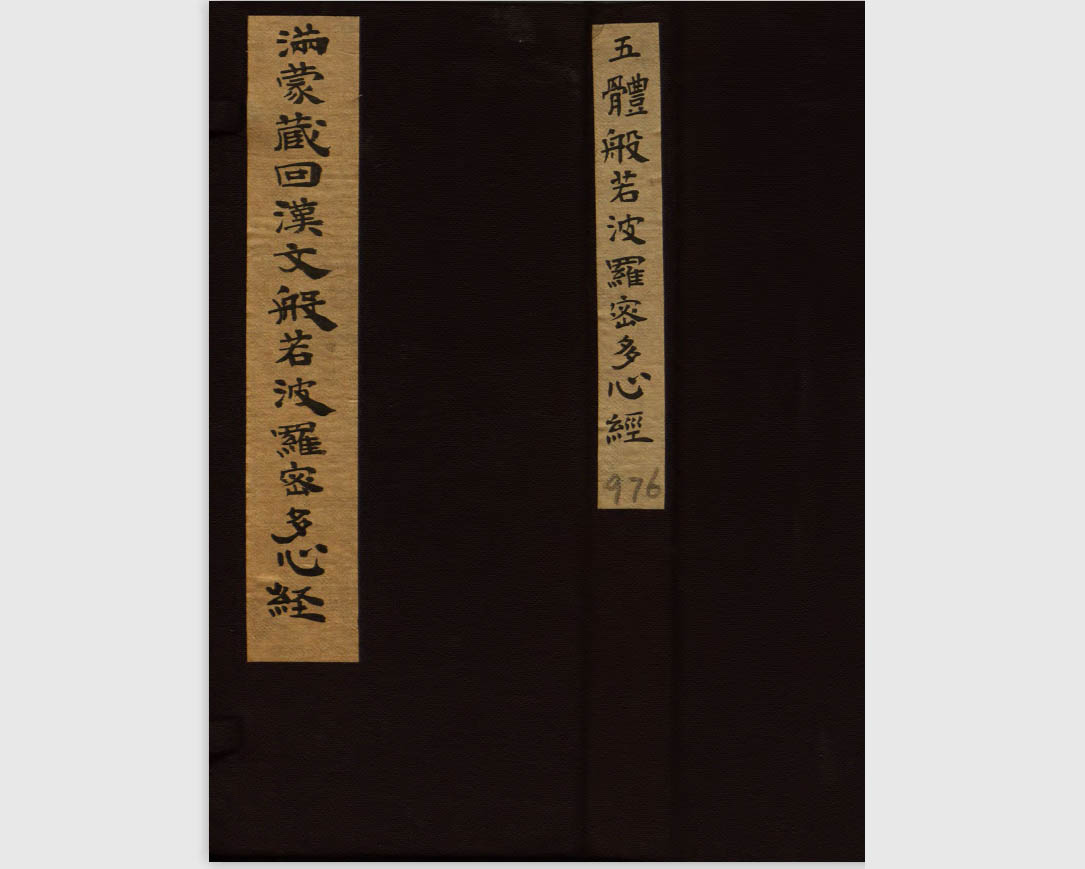 五體般若波羅密多心經
976
滿蒙蔵回漢文般若波羅密多心経